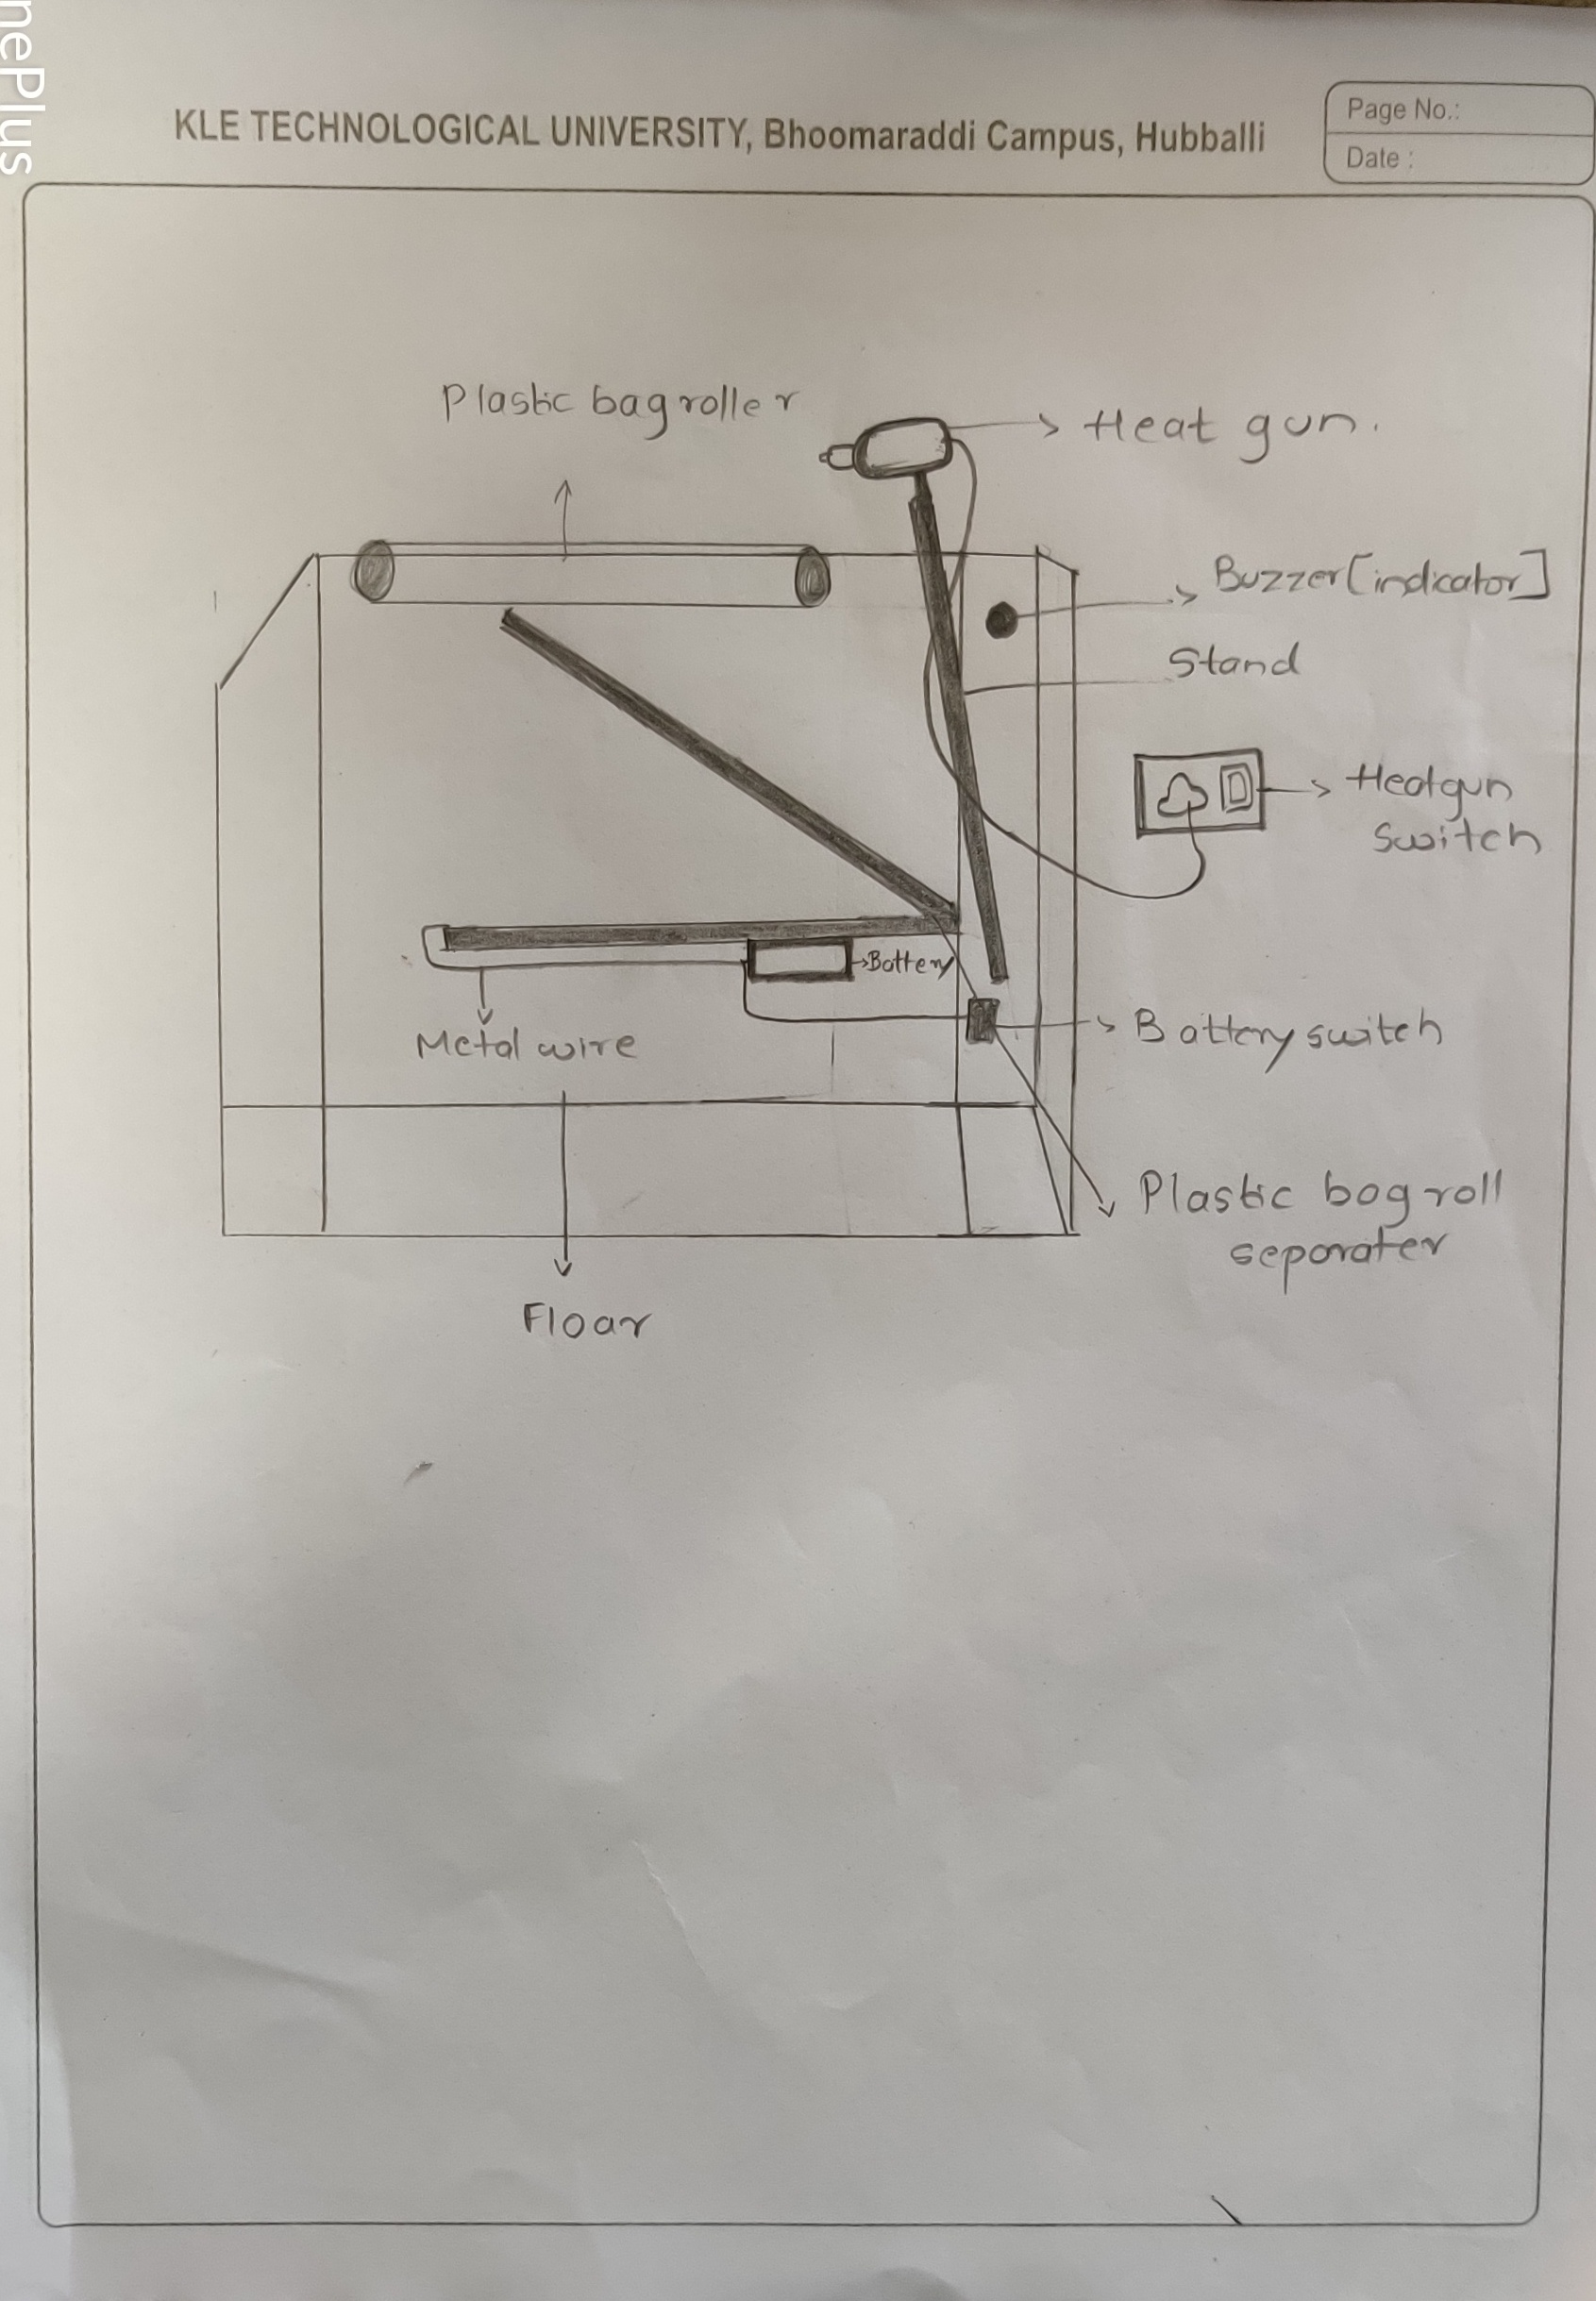 nePlus
KLE TECHNOLOGICAL UNIVERSITY, Bhoomaraddi Campus, Hubballi
Page No.:
Date :
Plastic bag roller
Heat gun.
Buzzer [indicator]
Stand
Heatgun
switch
Battery
Metal wire
Battery switch
Plastic bag roll
seporater
Floar